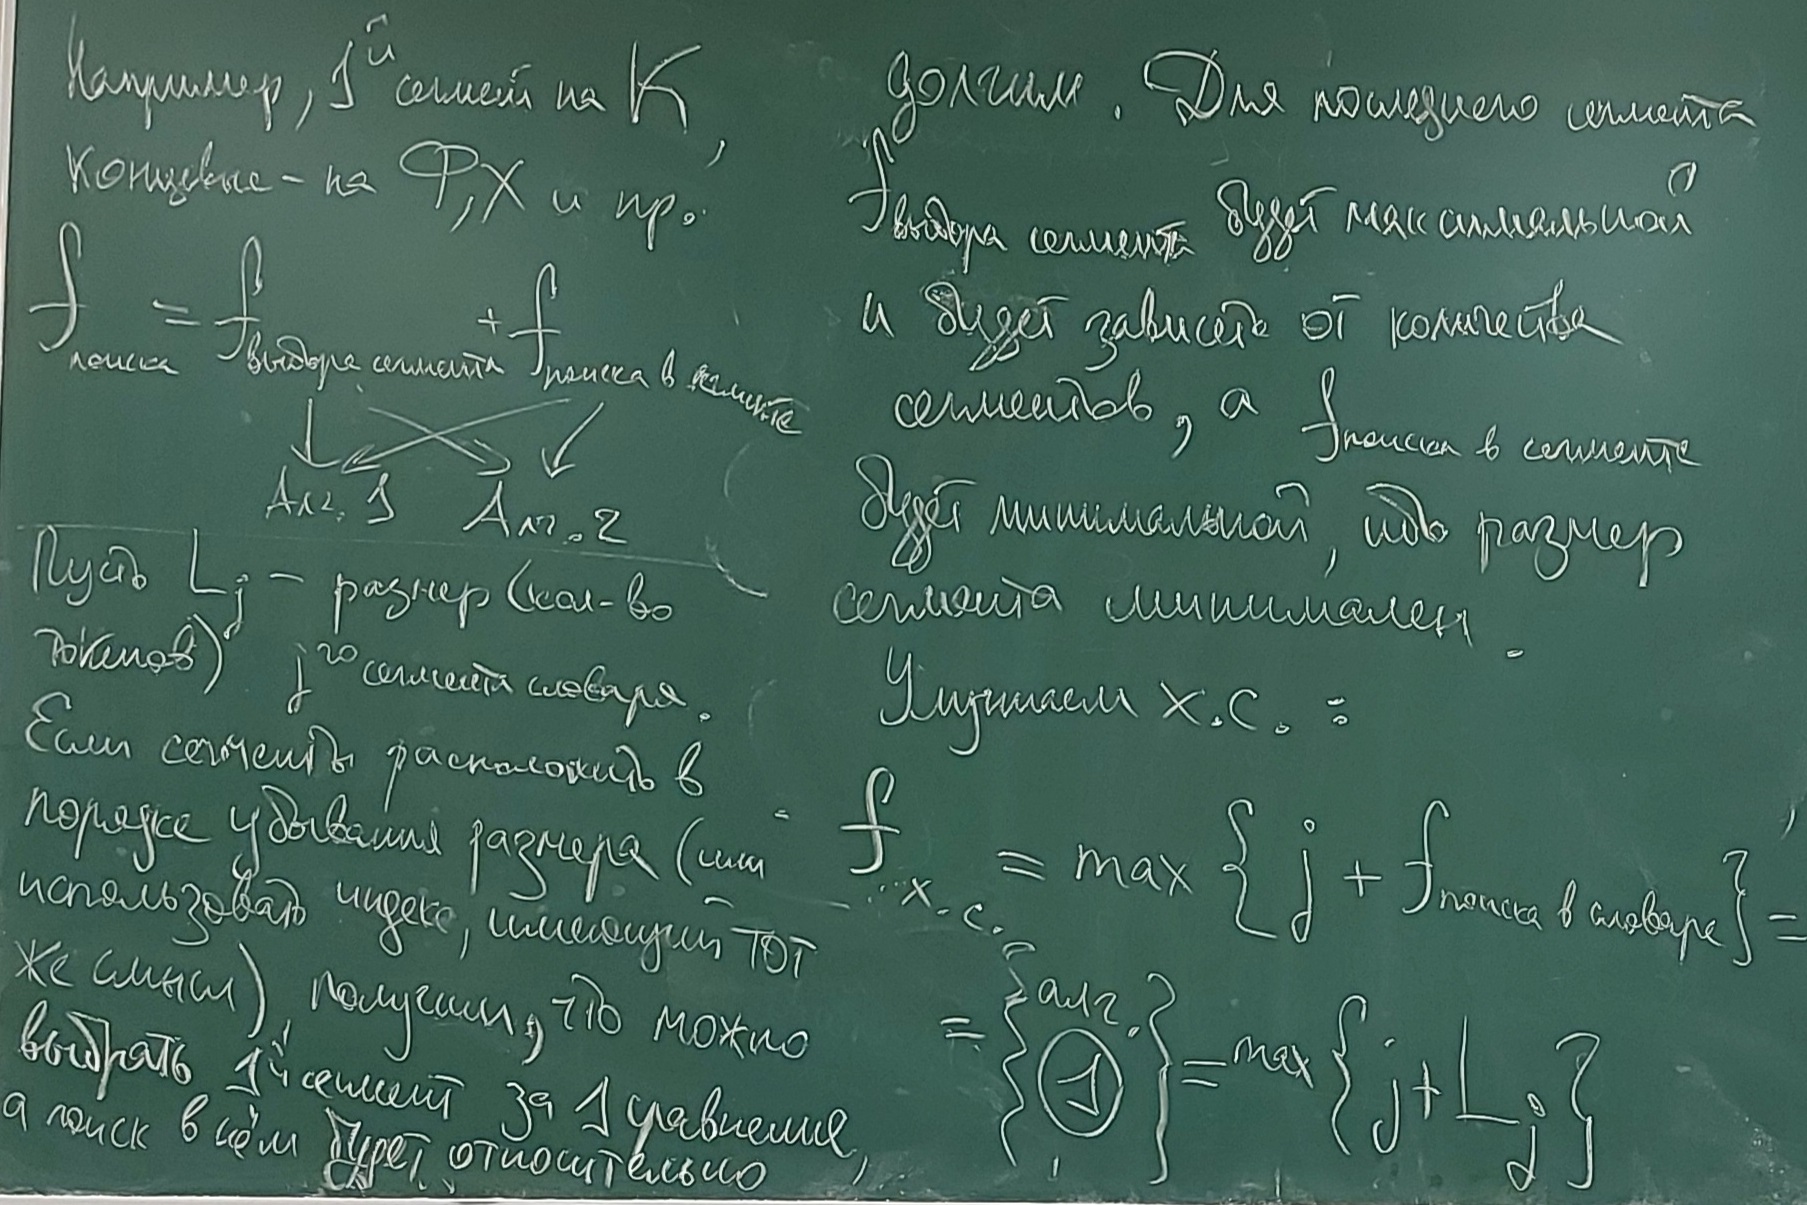 Например, 1й сегмент на К,
концевые - на Ф, Х и пр.
f поиска = f выбора сегмента + f поиска в сегменте
Алг. 1 Алг. 2
Пусть Lj - размер (кол-во
токенов) jго сегмента словаря.
Если сегменты расположить в
порядке убывания размера (или
использовать индекс, имеющий тот
же смысл), получим, что можно
выбрать 1й сегмент за 1 сравнение,
а поиск в нём будет относительно
долгим. Для последнего сегмента
f выбора сегмента будет максимальной
и будет зависеть от количества
сегментов, а f поиска в сегменте
будет минимальной, ибо размер
сегмента минимален.
Улучшаем х.с. :
f х.с. = max { j + f поиска в словаре } =
= { алг. 1 } = max { j + Lj }